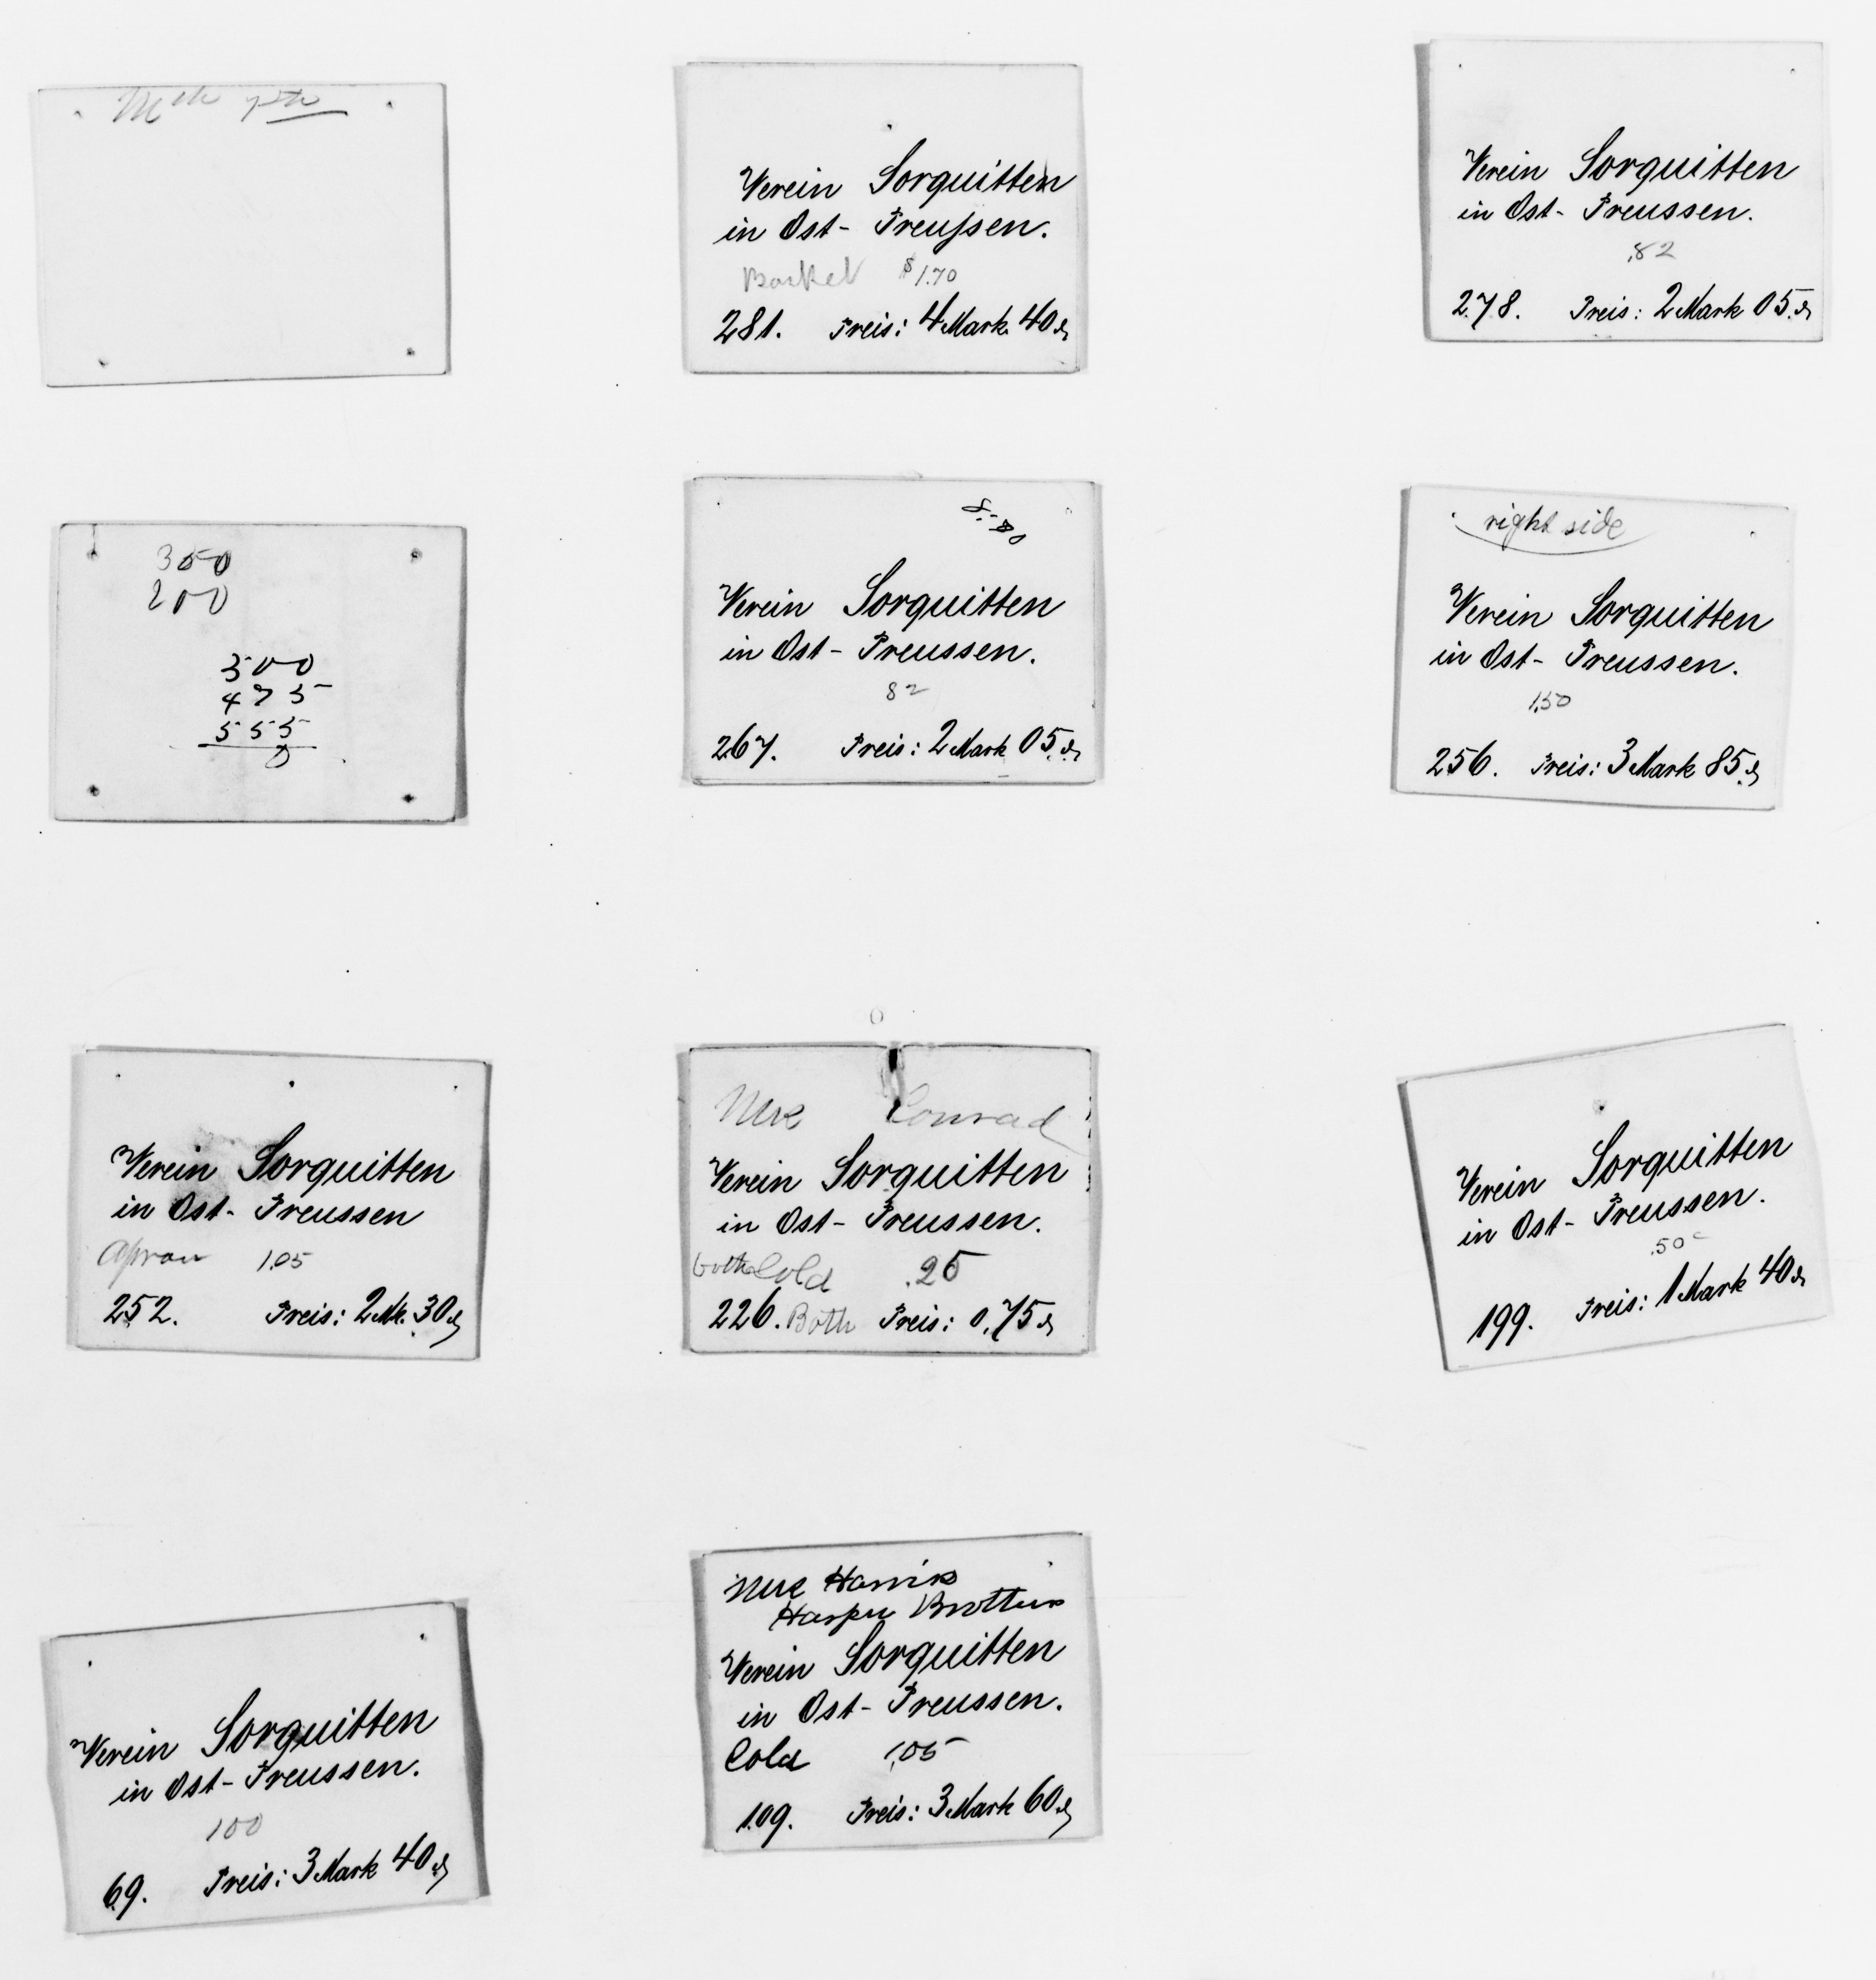 Verein Sorquitten
in Ost- Preußen.
Basket $1.70
281. Preis: 4 Mark 40 ₰
Verein Sorquitten
in Ost- Preussen.
.82
278. Preis: 2 Mark 05 ₰
350
200
500
475
555
Verein Sorquitten
in Ost- Preussen.
82
267. Preis: 2 Mark 05 ₰
right side
Verein Sorquitten
in Ost- Preussen.
1.50
256. Preis: 3 Mark 85 ₰
Verein Sorquitten
in Ost- Preussen
Apron 1.05
252. Preis: 2 Mk. 30 ₰
Conrad
Verein Sorquitten
in Ost- Preussen.
both Sold .25
226. Both Preis: 0,75 ₰
Verein Sorquitten
in Ost- Preussen.
.50 c
199. Preis: 1 Mark 40 ₰
Verein Sorquitten
in Ost- Preussen.
100
69. Preis: 3 Mark 40 ₰
Harris
Harper Brothers
Verein Sorquitten
in Ost- Preussen.
Sold 1.05
109. Preis: 3 Mark 60 ₰